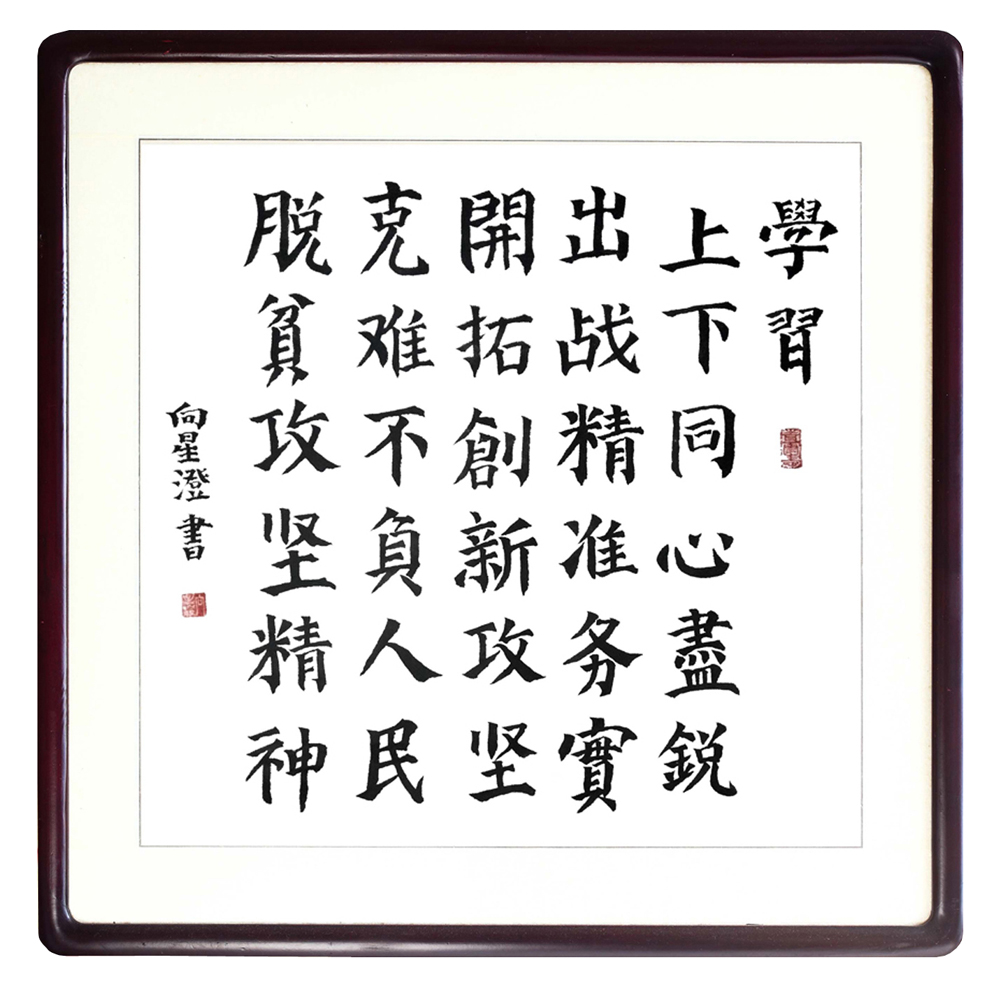 學習
上下同心盡銳
出战精准务實
開拓創新攻坚
克难不負人民
脱貧攻坚精神
向星澄書